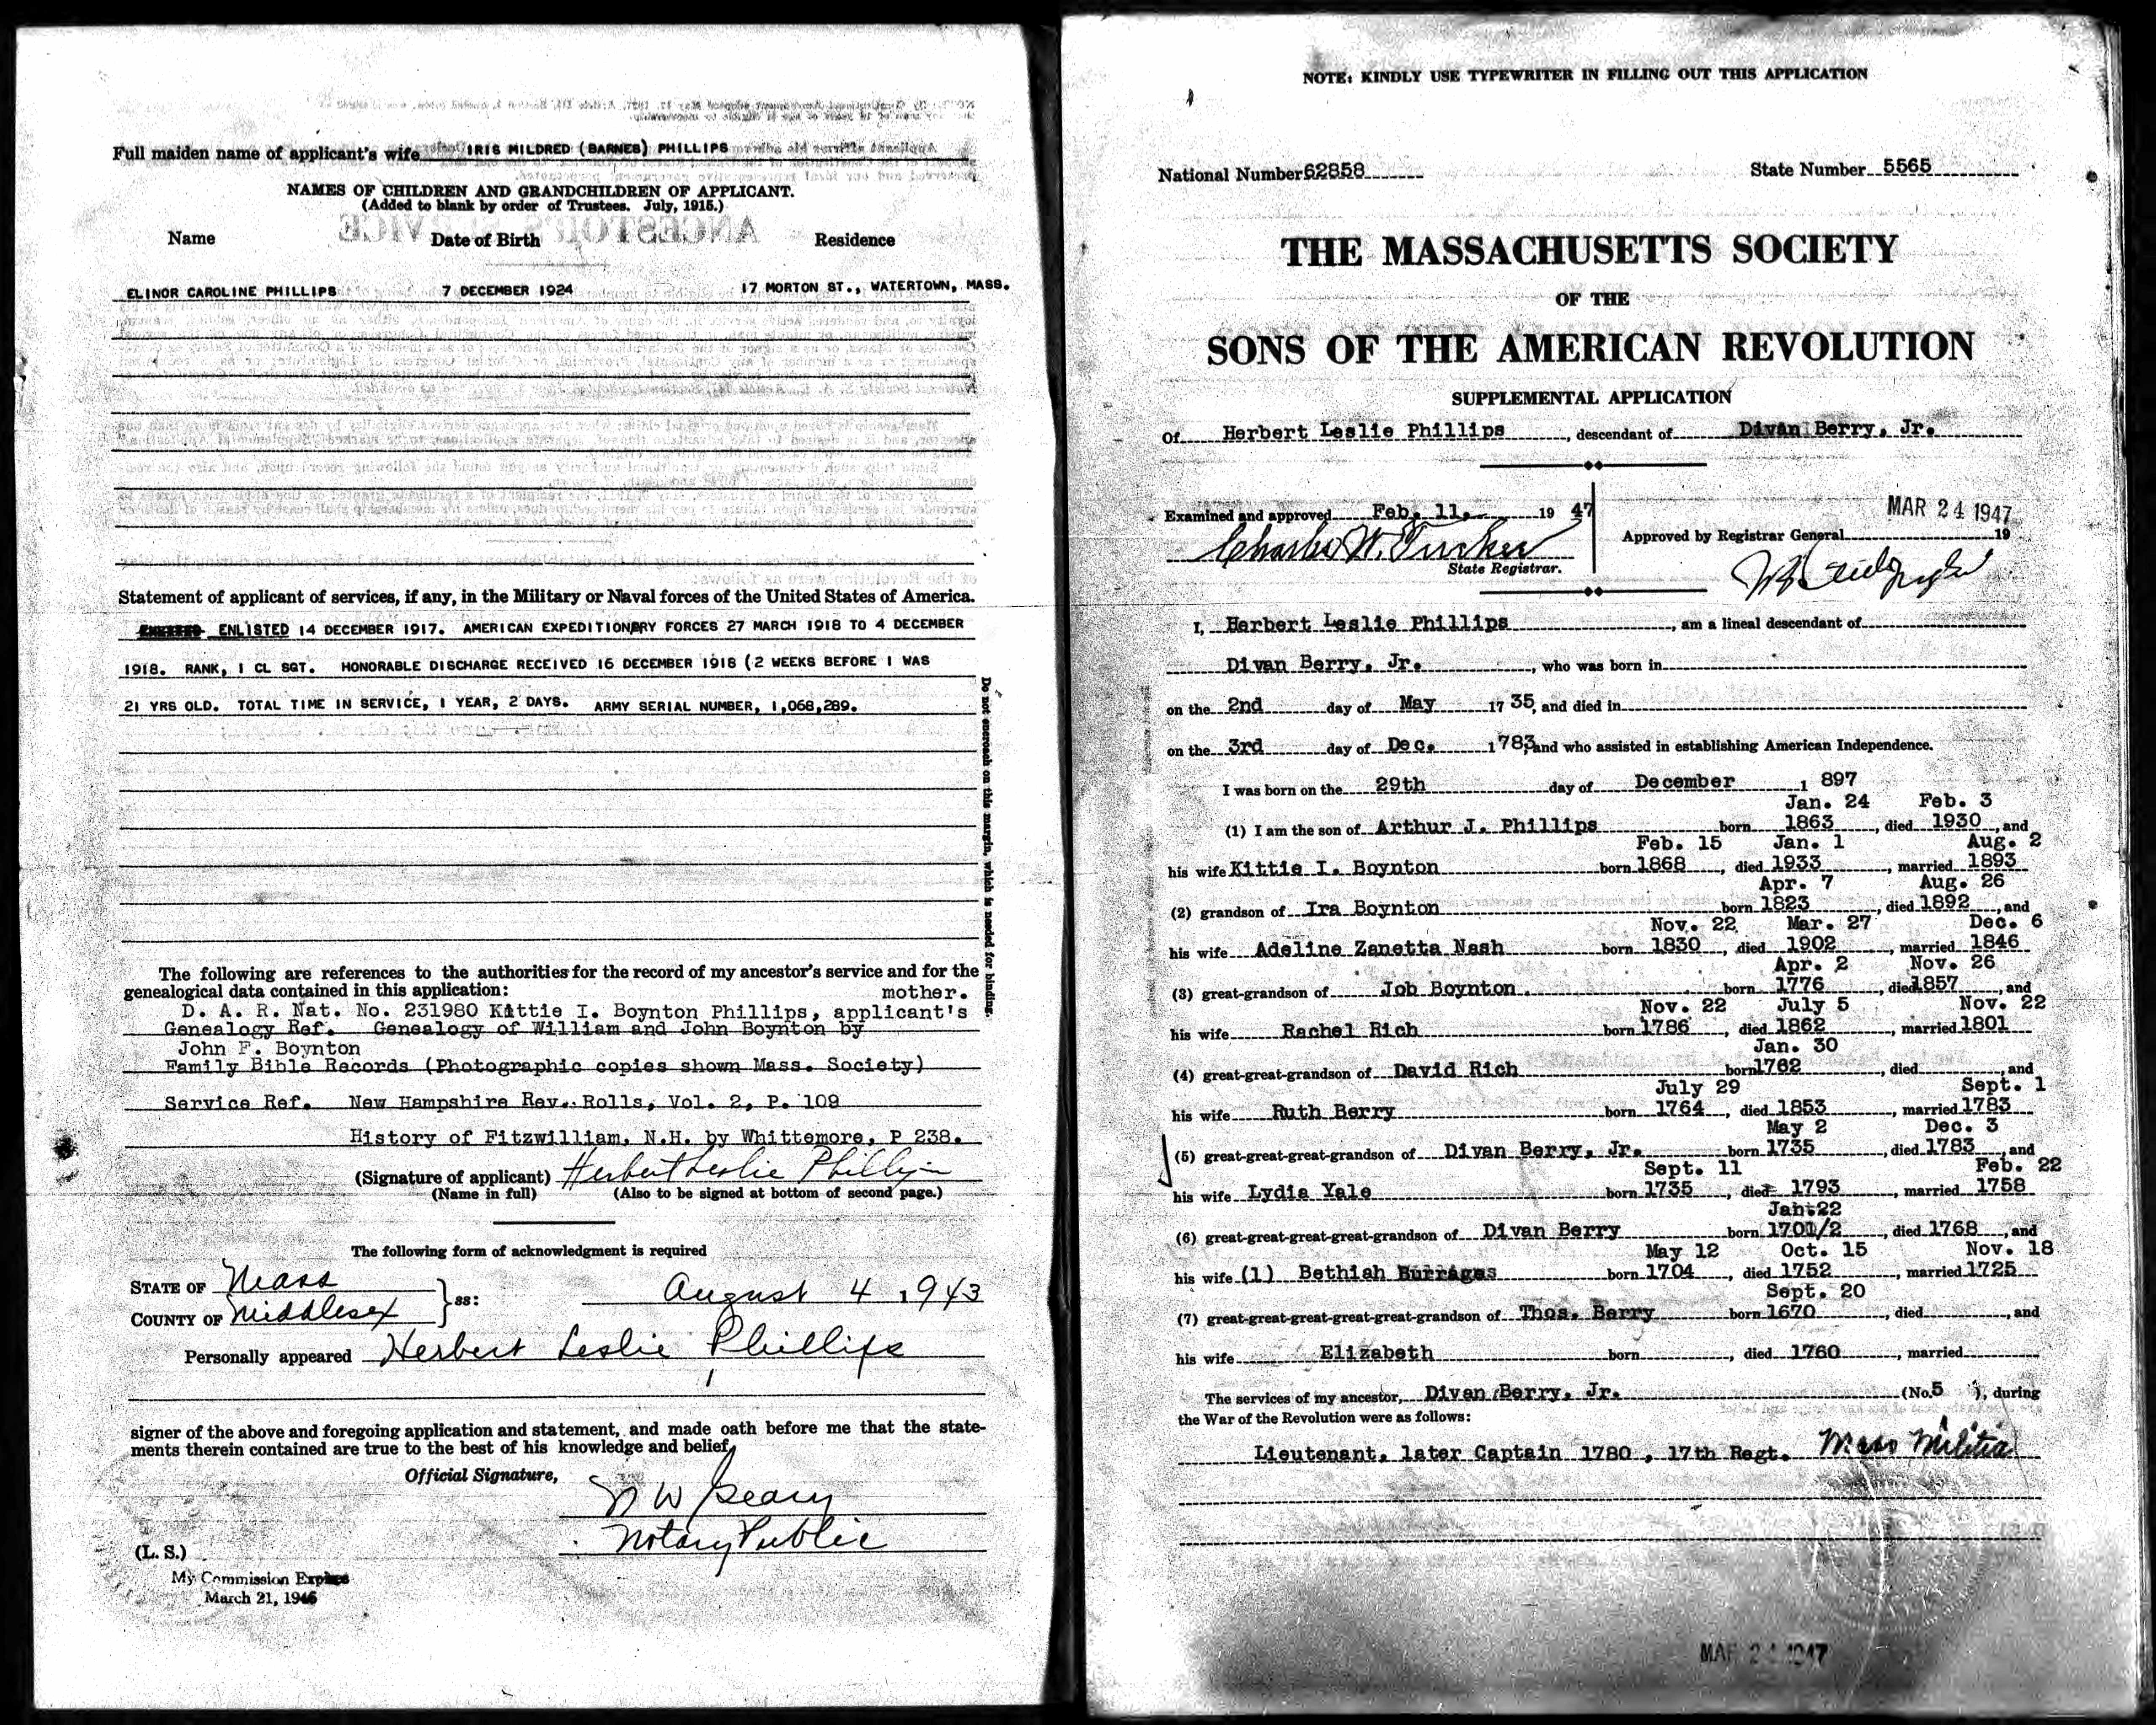 Full maiden name of applicant's wife IRIS MILDRED (BARNES) PHILLIPS
NAMES OF CHILDREN AND GRANDCHILDREN OF APPLICANT.
(Added to blank by order of Trustees. July, 1915.)
Name Date of Birth Residence
ELINOR CAROLINE PHILLIPS 7 DECEMBER 1924 17 MORTON ST., WATERTOWN, MASS.
Statement of applicant of services, if any, in the Military or Naval forces of the United States of America.
ENLISTED 14 DECEMBER 1917. AMERICAN EXPEDITIONARY FORCES 27 MARCH 1918 TO 4 DECEMBER
1918. RANK, 1 CL SGT. HONORABLE DISCHARGE RECEIVED 16 DECEMBER 1918 (2 WEEKS BEFORE I WAS
21 YRS OLD. TOTAL TIME IN SERVICE, 1 YEAR, 2 DAYS. ARMY SERIAL NUMBER, 1,068,289.
Do not encroach on this margin, which is needed for binding.
The following are references to the authorities for the record of my ancestor's service and for the
genealogical data contained in this application: mother.
D. A. R. Nat. No. 231980 Kittie I. Boynton Phillips, applicant's
Genealogy Ref. Genealogy of William and John Boynton by
John F. Boynton
Family Bible Records (Photographic copies shown Mass. Society)
Service Ref. New Hampshire Rev. Rolls, Vol. 2, P. 109
History of Fitzwilliam, N.H. by Whittemore, P 238.
(Signature of applicant) Herbert Leslie Phillips
(Name in full) (Also to be signed at bottom of second page.)
The following form of acknowledgment is required
STATE OF Mass
COUNTY OF Middlesex } ss: August 4, 1943
Personally appeared Herbert Leslie Phillips
signer of the above and foregoing application and statement, and made oath before me that the state-
ments therein contained are true to the best of his knowledge and belief,
Official Signature,
N W Geary
Notary Public
(L. S.)
My Commission Expires
March 21, 1946
NOTE: KINDLY USE TYPEWRITER IN FILLING OUT THIS APPLICATION
National Number 62858 State Number 5565
THE MASSACHUSETTS SOCIETY
OF THE
SONS OF THE AMERICAN REVOLUTION
SUPPLEMENTAL APPLICATION
Of Herbert Leslie Phillips, descendant of Divan Berry, Jr.
Examined and approved Feb. 11, 19 47
MAR 24 1947
Approved by Registrar General 19
Charles W. Tucker
State Registrar.
I, Herbert Leslie Phillips, am a lineal descendant of
Divan Berry, Jr., who was born in
on the 2nd day of May 17 35, and died in
on the 3rd day of Dec. 1 783, and who assisted in establishing American Independence.
I was born on the 29th day of December, 1 897
Jan. 24 Feb. 3
(1) I am the son of Arthur J. Phillips born 1863, died 1930, and
Feb. 15 Jan. 1 Aug. 2
his wife Kittie I. Boynton born 1868, died 1933, married 1893
Apr. 7 Aug. 26
(2) grandson of Ira Boynton born 1823, died 1892, and
Nov. 22 Mar. 27 Dec. 6
his wife Adeline Zanetta Nash born 1830, died 1902, married 1846
Apr. 2 Nov. 26
(3) great-grandson of Job Boynton born 1776, died 1857, and
Nov. 22 July 5 Nov. 22
his wife Rachel Rich born 1786, died 1862, married 1801
Jan. 30
(4) great-great-grandson of David Rich born 1762, died, and
July 29 Sept. 1
his wife Ruth Berry born 1764, died 1853, married 1783
May 2 Dec. 3
(5) great-great-great-grandson of Divan Berry, Jr. born 1735, died 1783, and
Sept. 11 Feb. 22
his wife Lydia Yale born 1735, died 1793, married 1758
Jan. 22
(6) great-great-great-great-grandson of Divan Berry born 1701/2, died 1768, and
May 12 Oct. 15 Nov. 18
his wife (1) Bethiah Burrages born 1704, died 1752, married 1725
Sept. 20
(7) great-great-great-great-great-grandson of Thos. Berry born 1670, died, and
his wife Elizabeth born, died 1760, married
The services of my ancestor, Divan Berry, Jr. (No. 5), during
the War of the Revolution were as follows:
Lieutenant, later Captain 1780, 17th Regt. Mass Militia
MAR 24 1947